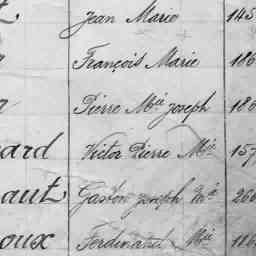 Jean Marie 145
François Marie 186
Pierre Mie Joseph 186
ard Victor Pierre Mie 157
aut Gaston Joseph Mie 260
oux Ferdinand Mie 116